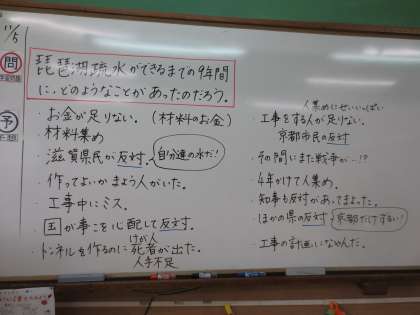 11/5
問
琵琶湖疏水ができるまでの9年間
に、どのようなことがあったのだろう。
予
・お金が足りない。(材料のお金)
・材料集め
・滋賀県民が反対。自分達の水だ!
・作ってよいかまよう人がいた。
・工事中にミス。
・国が事こを心配して反対。
・トンネルを作るのにけが人 死者が出た。
人手不足
人集めにせいいっぱい
・工事をする人が足りない。
京都市民の反対
・その間にまた戦争が…!?
・4年かけて人集め。
・知事も反対があってまよった。
・ほかの県の反対 京都だけずるい!
・工事の計画になやんだ。